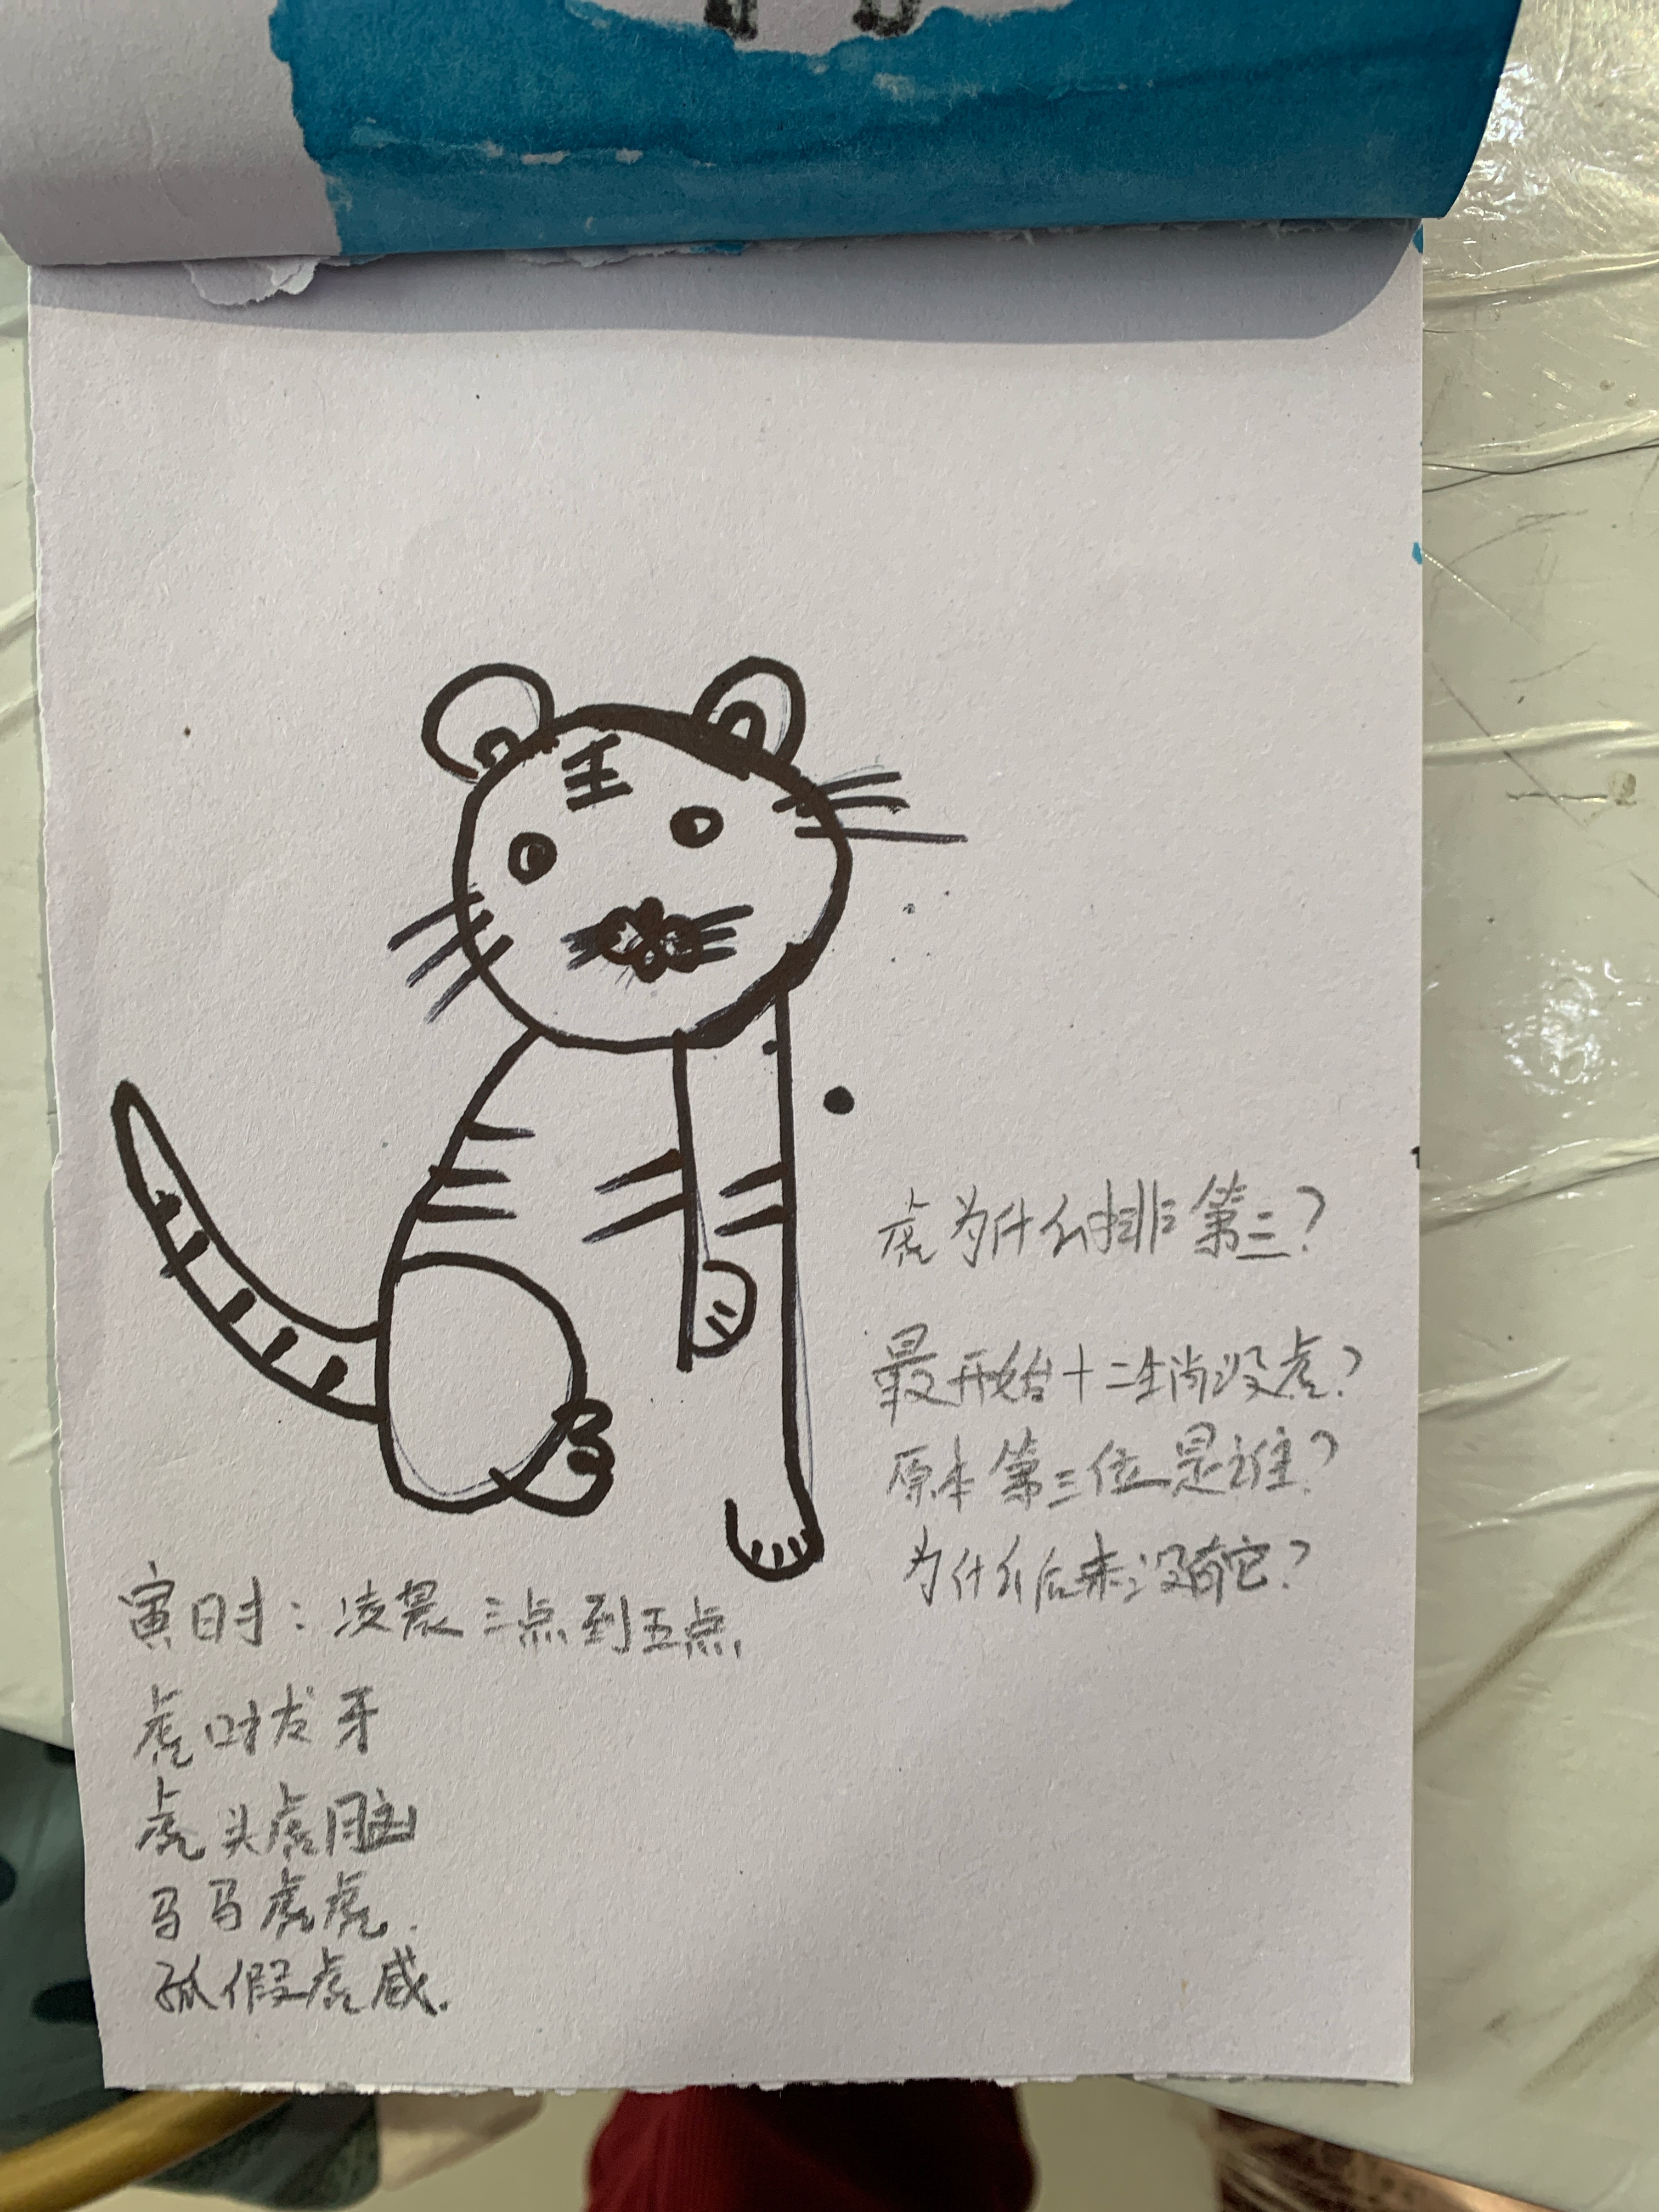 王
虎为什么排第三?
最开始十二生肖没虎?
原本第三位是谁?
为什么后来没有它?
寅时:凌晨三点到五点
虎口拔牙
虎头虎脑
马马虎虎.
狐假虎威.